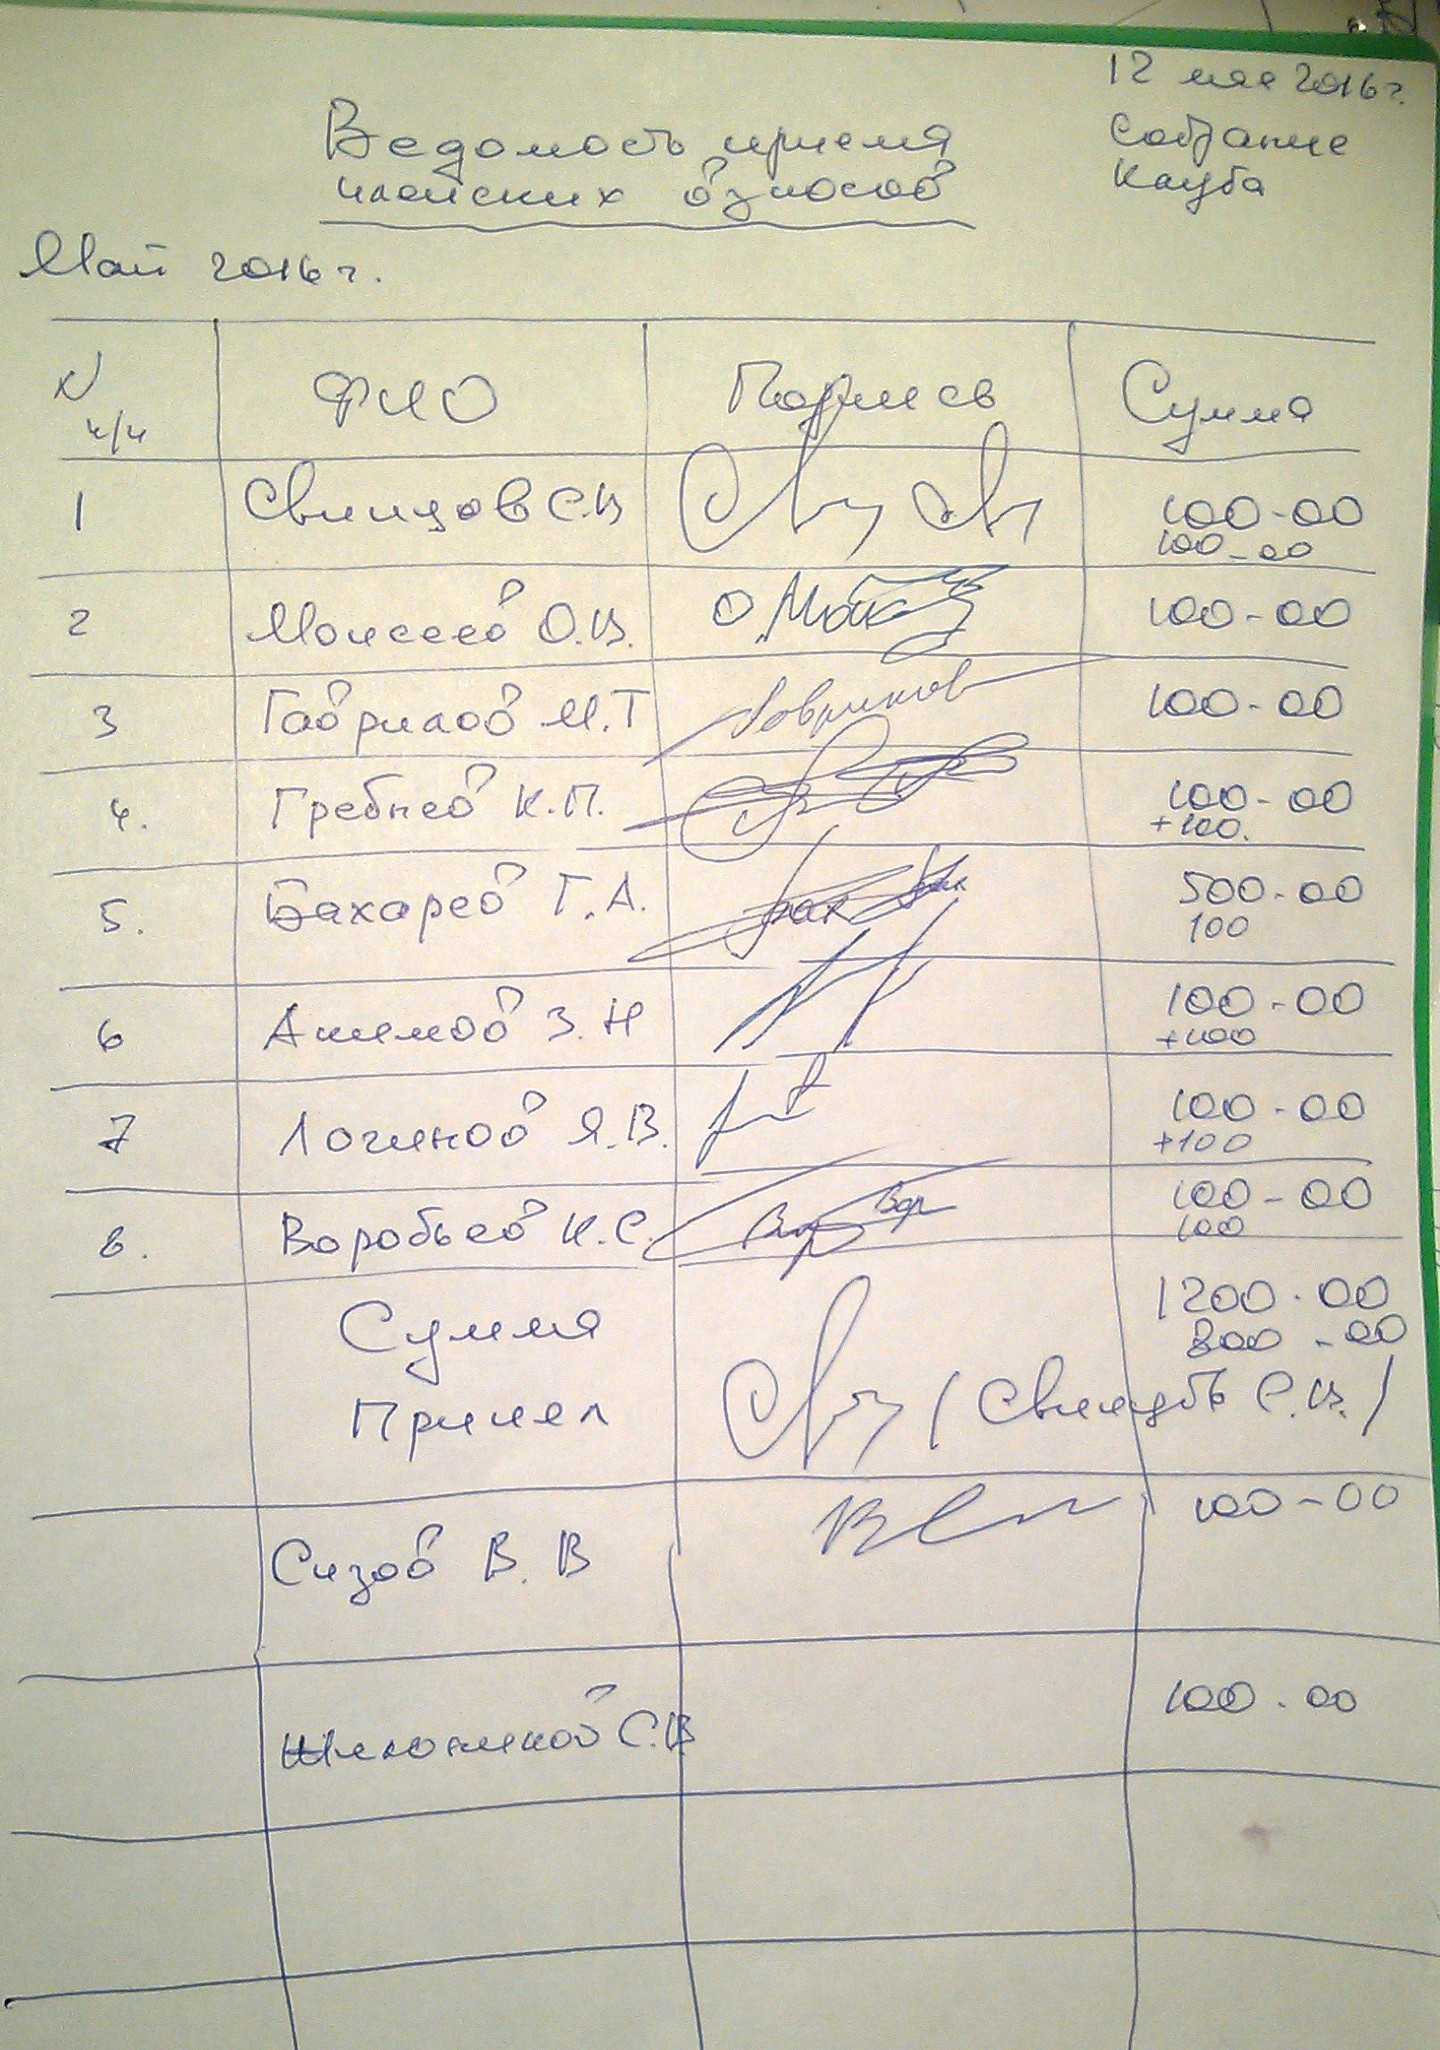 12 мая 2016г.
Собрание
Клуба
Ведомость приема
членских взносов
Май 2016г.
N п/п ФИО Подпись Сумма
1 Свинцов С.В 100-00
100-00
2 Моисеев О.В. 100-00
3 Гаврилов М.Т Гаврилов 100-00
4. Гребнев К.П. 100-00
+100.
5. Бахарев Г.А. 500-00
100
6 Акимов З.Н 100-00
+100
7 Логинов Я.В. 100-00
+100
8. Воробьев К.С. Вор Вор 100-00
100
Сумма 1200-00
800-00
Принял (Свинцов С.В.)
Сизов В.В 100-00
С.В 100-00